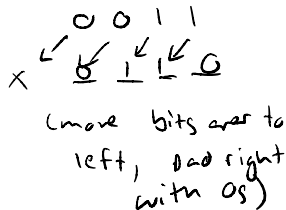 0 0 1 1
x 0 1 1 0
(move bits over to
left, pad right
with 0s)